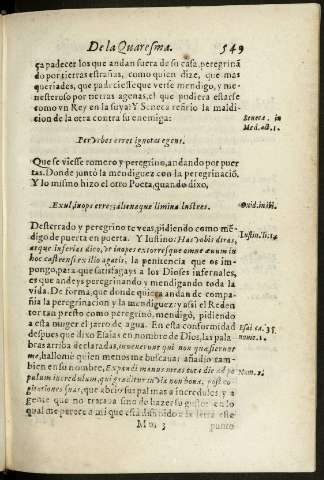 De la Quaresma. 549
ça padecer los que andan fuera de su casa, peregrinã
do por tierras estrañas, como quien dize, que mas
querades, que padecieste que verse mendigo, y me-
nesteroso por tierras agenas, el que pudiera estarse
como vn Rey en la suya? Y Seneca refirio la maldi-
cion de la otra contra su enemiga:
Seneca. in
Med. act. 1.
Per vrbes erret ignotas egens.
Que se viesse romero y peregrino, andando por puer
tas. Donde juntó la mendiguez con la peregrinació.
Y lo mismo hizo el otro Poeta, quando dixo,
Exul, inops erres, alienaque limina lustres.
Ouid. in ibi.
Desterrado y peregrino te veas, pidiendo como mẽ
digo de puerta en puerta. Y Iustino: Has vobis diras,
atque inferias dico, vt inopes extorresque omne æuum in
hoc castrensi exilio agatis, la penitencia que os im-
pongo, para que satisfagays a los Dioses infernales,
es que andeys peregrinando y mendigando toda la
vida. De forma, que donde quiera andan de compa-
ñia la peregrinacion y la mendiguez: y assi el Reden
tor tan presto como peregrinó, mendigó, pidiendo
a esta muger el jarro de agua. En esta conformidad
despues que dixo Esaias en nombre de Dios, las pala-
bras arriba declaradas, inuenerunt qui non quæsierunt
me, hallome quien menos me buscaua: añadio tam-
bien en su nombre, Expandi manus meas tota die ad po
pulum incredulum, qui graditur in via non bona, post co-
gitationes suas, que abrio sus palmas a incredulos y a
gente que no trataua sino de hazer su gusto: en lo
qual me parece a mi que està diuino la letra este
Iustin. li. 14
Esai. ca. 35.
nume. 1.
Num. 2.
Mm 3 punto